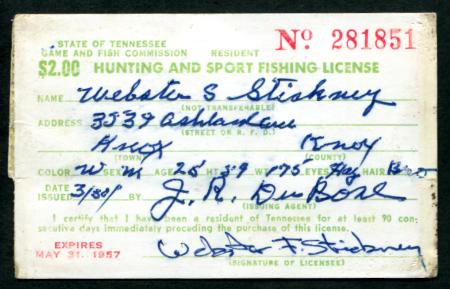 STATE OF TENNESSEE
GAME AND FISH COMMISSION RESIDENT Nº 281851
$2.00 HUNTING AND SPORT FISHING LICENSE
NAME Webster S Stickney
(NOT TRANSFERABLE)
ADDRESS 3539 Ashland Ave
(STREET OR R. F. D.)
Knox Knox
(COUNTY)
COLOR W SEX M AGE 25 HT 59 WT 175 EYES Haz HAIR Bro
DATE ISSUED 3/30/ BY J. R. DuBose
(ISSUING AGENT)
I certify that I have been a resident of Tennessee for at least 90 con-
secutive days immediately preceding the purchase of this license.
EXPIRES
MAY 31, 1957 Webster F. Stickney
(SIGNATURE OF LICENSEE)